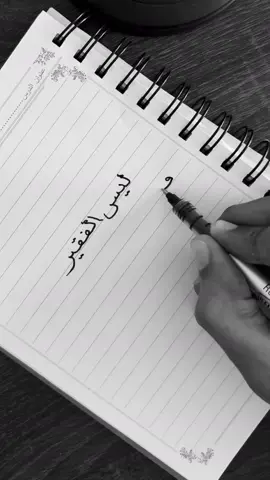 و
ليس الفقير